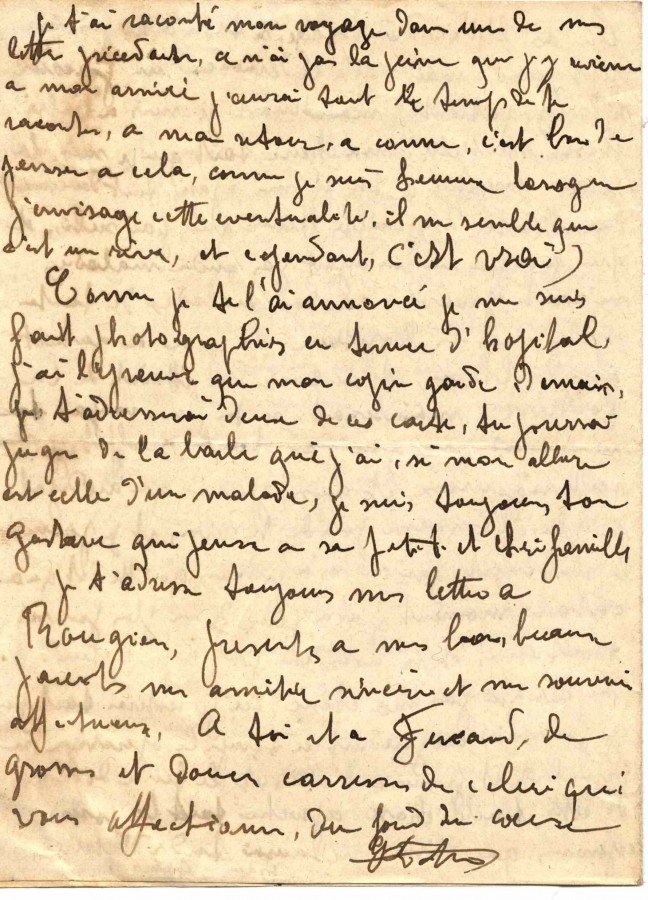 je t'ai raconté mon voyage dans une de mes
lettre précédente, ce n'ai pas la peine que j'y revienne
a mon arrivé j'aurai tout le temps de te
raconter, a mon retour, a comme, c'est bon de
penser a cela, comme je suis heureux lorsque
j'envisage cette eventualité, il me semble que
c'est un rêve, et cependant, c'est vrai
Comme je te l'ai annoncé je me suis
fait photographier en tenue d'hopital,
j'ai l'épreuve que mon copin garde demain,
je t'adresserai deux de ces carte, tu pourras
juger de la barbe que j'ai, si mon allure
est celle d'un malade, je suis toujours ton
Gustave qui pense a sa petite et chère famille
je t'adresse toujours mes lettres a
Rougiers, presente a mes bons beaux
parents mes amitiés sincère et mes souvenirs
affectueux, A toi et a Fernand, de
grosses et douces carresses de celui qui
vous affectionne, du fond du coeur